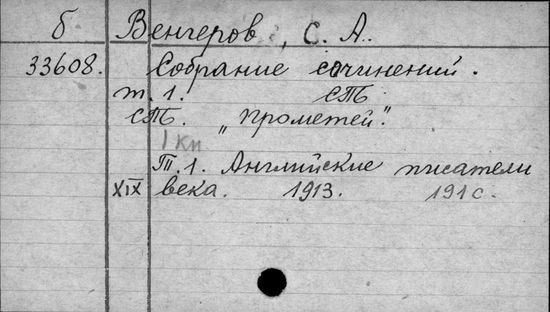 б Венгеров, С. А.
33608. Собрание сочинений.
т. 1. СПб
СПб. „Прометей".
1 кн
Т. 1. Английские писатели
XIX века. 1913. 191 с.